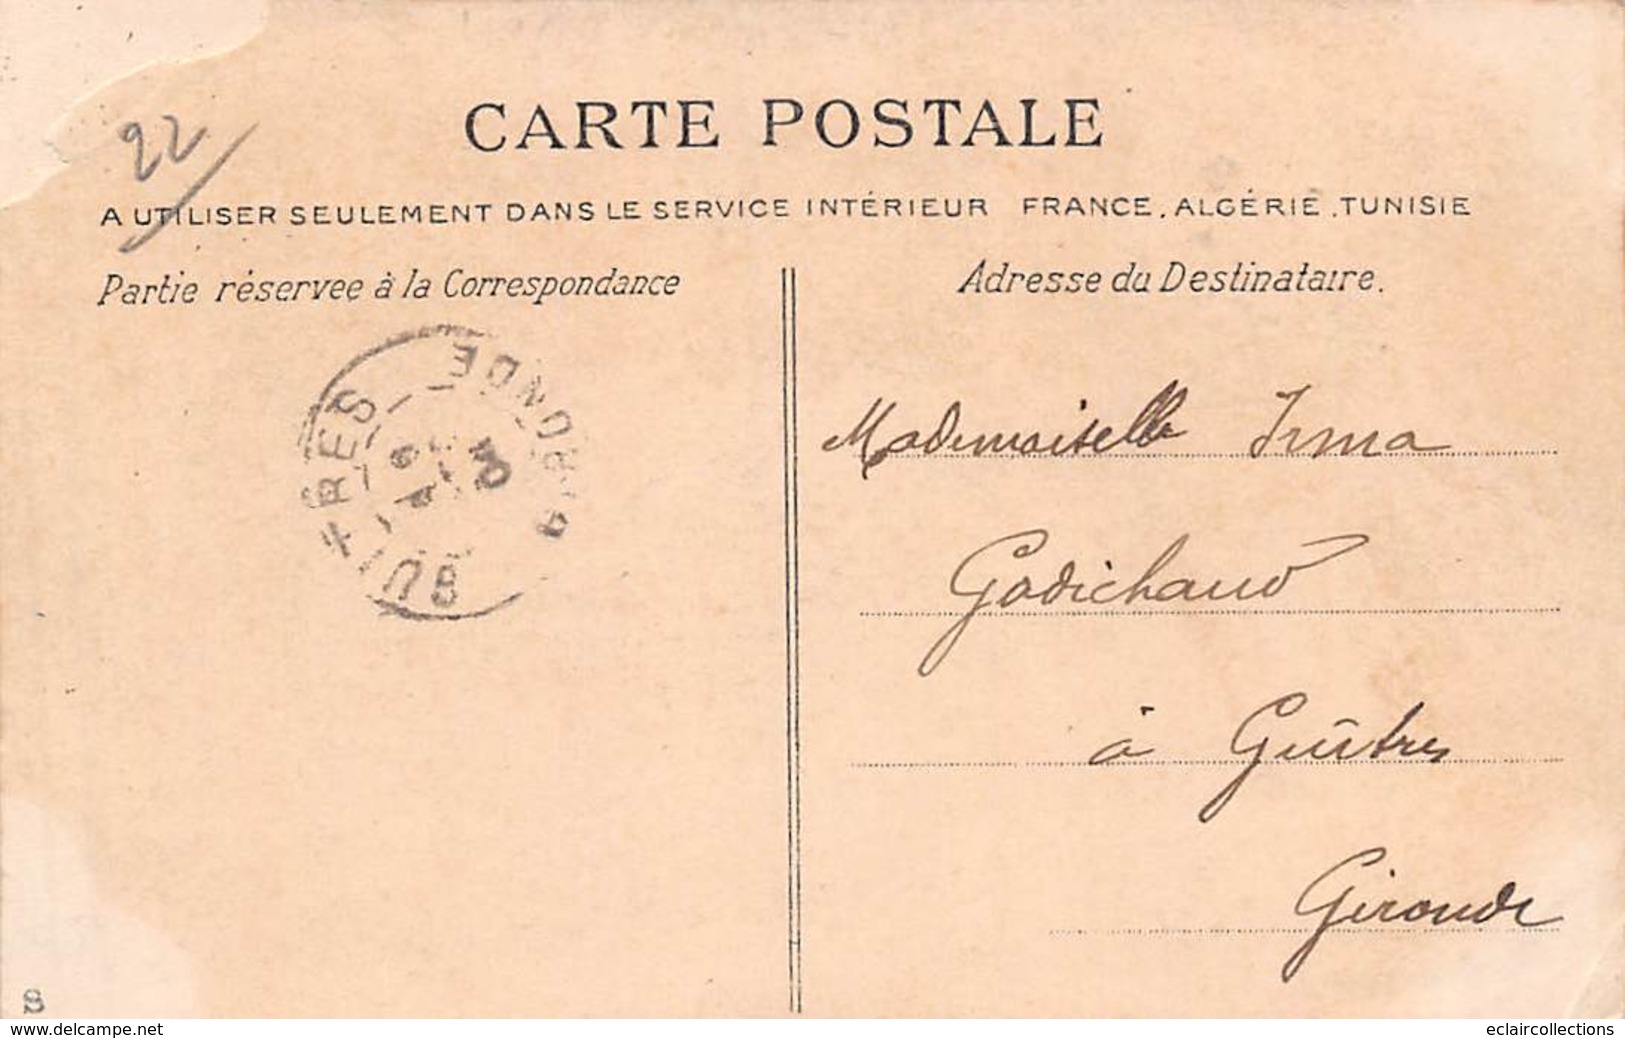 22
CARTE POSTALE
A UTILISER SEULEMENT DANS LE SERVICE INTÉRIEUR FRANCE, ALGÉRIE, TUNISIE
Partie réservee à la Correspondance
Adresse du Destinataire.
GUITRES
GIRONDE
Mademoiselle Irma
Godichaud
à Guîtres
Gironde
S
www.delcampe.net
eclaircollections